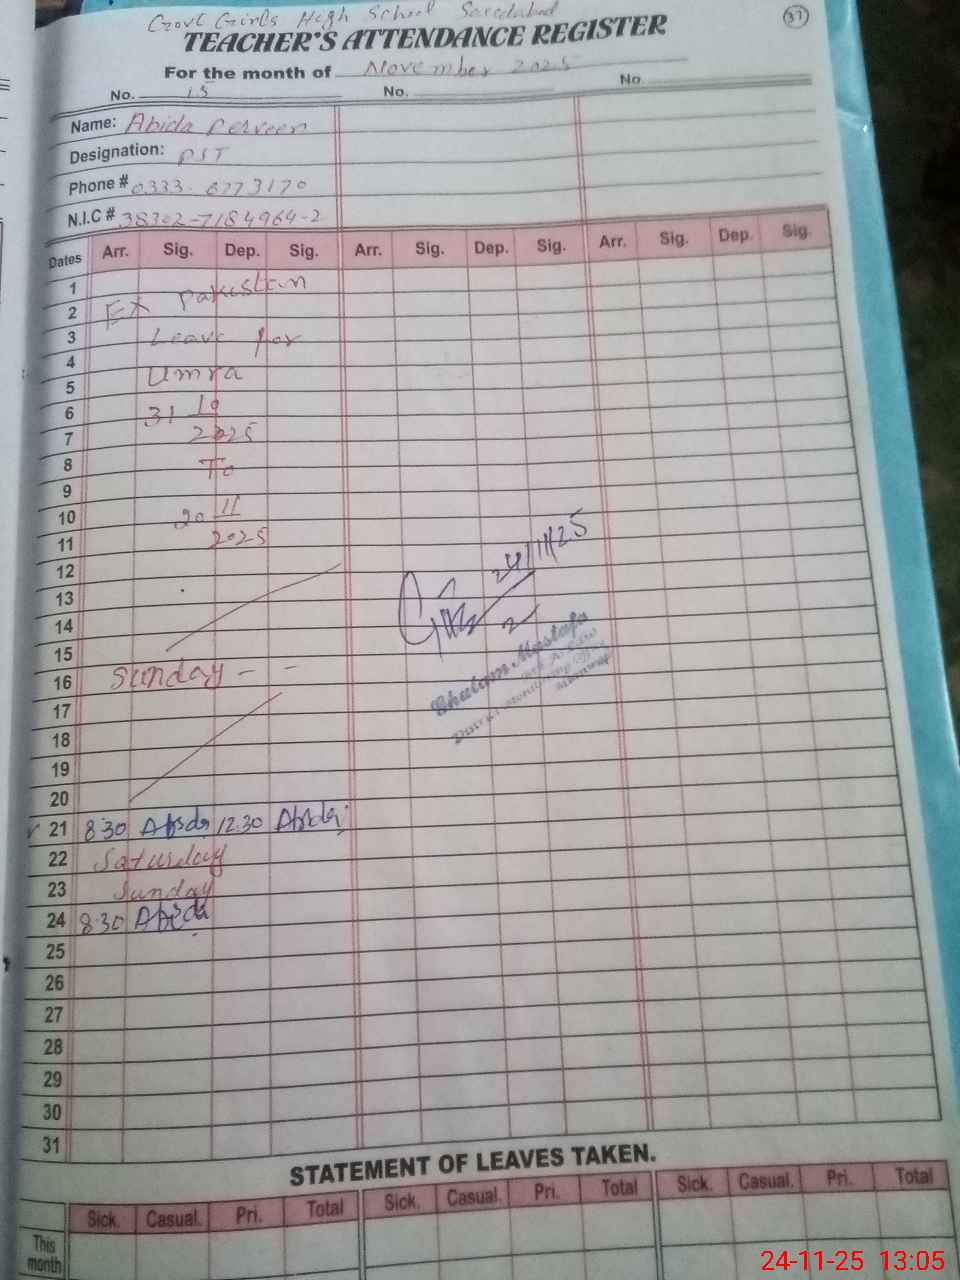 Govt Girls High School Saeedabad
37
TEACHER'S ATTENDANCE REGISTER
For the month of November 2025
No. 15 No. No.
Name: Abida Perveen
Designation: PST
Phone # 0333-6773170
N.I.C # 38302-7184964-2
Dates Arr. Sig. Dep. Sig. Arr. Sig. Dep. Sig. Arr. Sig. Dep. Sig.
1
2 EX Pakistan
3 Leave for
4
5 Umra
6 31 10
7 2025
8 To
9
10 20 11
11 2025
12
13
14
15
16 Sunday - -
17
18
19
20
24/11/25
Ghulam Mustafa
21 8:30 Abida 12:30 Abida
22 Saturday
23 Sunday
24 8:30 Abida
25
26
27
28
29
30
31
STATEMENT OF LEAVES TAKEN.
Sick. Casual. Pri. Total Sick. Casual. Pri. Total Sick. Casual. Pri. Total
This
month
24-11-25 13:05